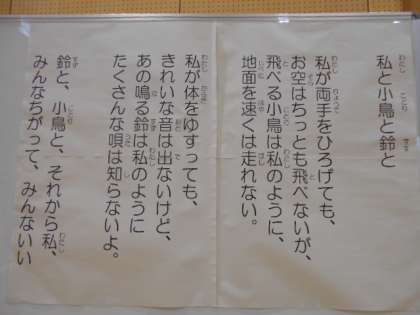 私と小鳥と鈴と
私が両手をひろげても、
お空はちっとも飛べないが、
飛べる小鳥は私のように、
地面を速くは走れない。
私が体をゆすっても、
きれいな音は出ないけど、
あの鳴る鈴は私のように
たくさんな唄は知らないよ。
鈴と、小鳥と、それから私、
みんなちがって、みんないい